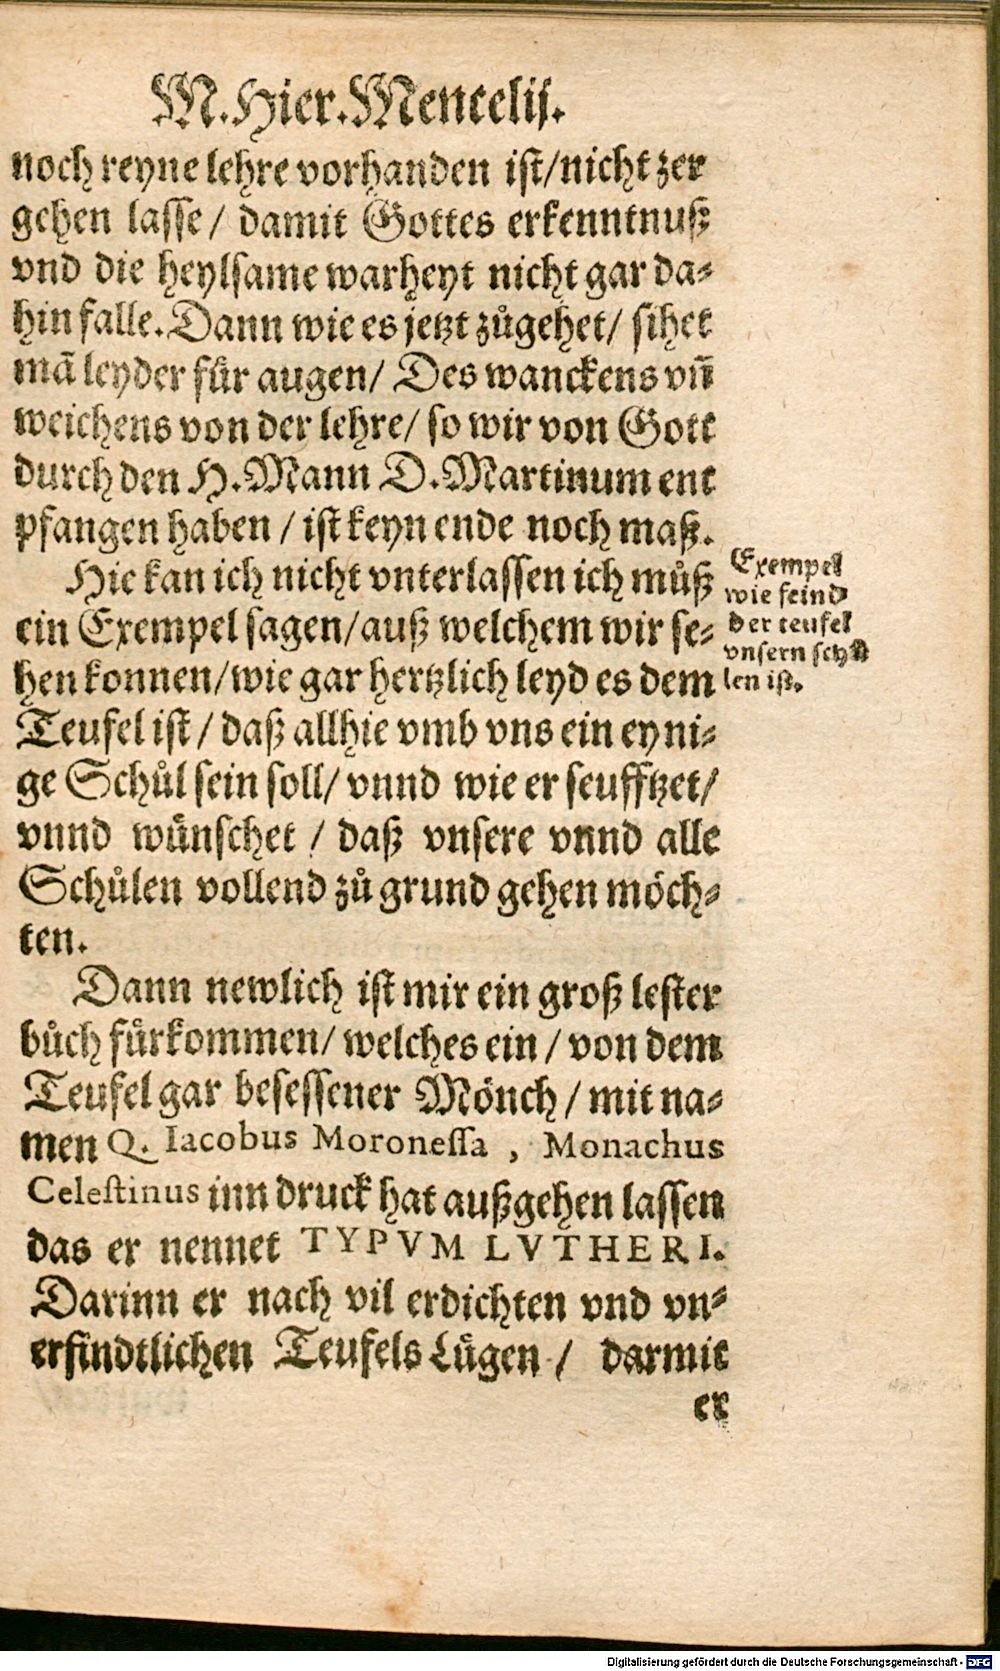 M. Hier. Mencelij.
noch reyne lehre vorhanden ist/nicht zer
gehen lasse/ damit Gottes erkenntnuß
vnd die heylsame warheyt nicht gar da-
hin falle. Dann wie es jetzt zůgehet/ sihet
mā leyder für augen/ Des wanckens vñ
weichens von der lehre/ so wir von Gott
durch den H. Mann D. Martinum ent
pfangen haben / ist keyn ende noch maß.
Hie kan ich nicht vnterlassen ich můß
ein Exempel sagen/auß welchem wir se-
hen konnen/wie gar hertzlich leyd es dem
Teufel ist/ daß allhie vmb vns ein eyni-
ge Schůl sein soll/ vnnd wie er seufftzet/
vnnd wünschet / daß vnsere vnnd alle
Schůlen vollend zů grund gehen möch-
ten.
Exempel
wie feind
der teufel
vnsern schů
len ist.
Dann newlich ist mir ein groß lester
bůch fürkommen/ welches ein / von dem
Teufel gar besessener Mönch / mit na-
men Q. Iacobus Moronessa , Monachus
Celestinus inn druck hat außgehen lassen
das er nennet TYPVM LVTHERI.
Darinn er nach vil erdichten vnd vn-
erfindtlichen Teufels Lügen / darmit
er
Digitalisierung gefördert durch die Deutsche Forschungsgemeinschaft - DFG